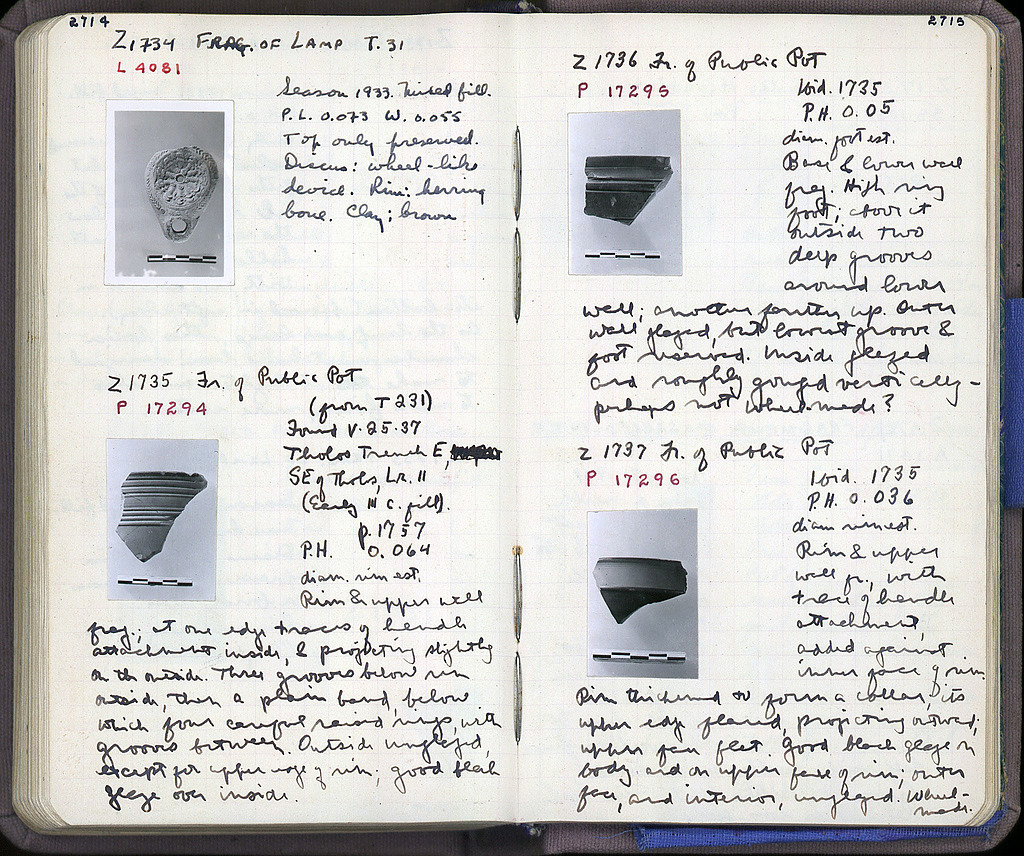 2714
Z1734 FRAG. OF LAMP T. 31
L 4081
Season 1933. Mixed fill.
P.L. 0.073 W. 0.055
Top only preserved.
Discus: wheel-like
device. Rim: herring
bone. Clay; brown
Z1735 Fr. of Public Pot
P 17294
(from T 231)
Found V.25.37
Tholos Trench E,
SE of Tholos, Lr. II
(Early III c. fill).
p. 1757
P.H. 0.064
diam. rim est.
Rim & upper wall
frag.; at one edge traces of handle
attachment inside, & projecting slightly
on the outside. Three grooves below rim
outside, then a plain band, below
which four careful raised rings, with
grooves between. Outside unglazed,
except for upper edge of rim; good black
glaze over inside.
2715
Z 1736 Fr. of Public Pot
P 17295
Ibid. 1735
P.H. 0.05
diam. foot est.
Base & lower wall
frag. High ring
foot; above it
outside two
deep grooves
around lower
wall; another further up. Outer
wall glazed, but lowest groove &
foot reserved. Inside glazed
and roughly gouged vertically -
perhaps not wheel-made?
Z 1737 Fr. of Public Pot
P 17296
Ibid. 1735
P.H. 0.036
diam rim est.
Rim & upper
wall fr., with
trace of handle
attachment,
added against
inner face of rim.
Rim thickened to form a collar, its
upper edge flared, projecting outward;
upper face flat. Good black glaze on
body and on upper face of rim; outer
face, and interior, unglazed. Wheel-
made.